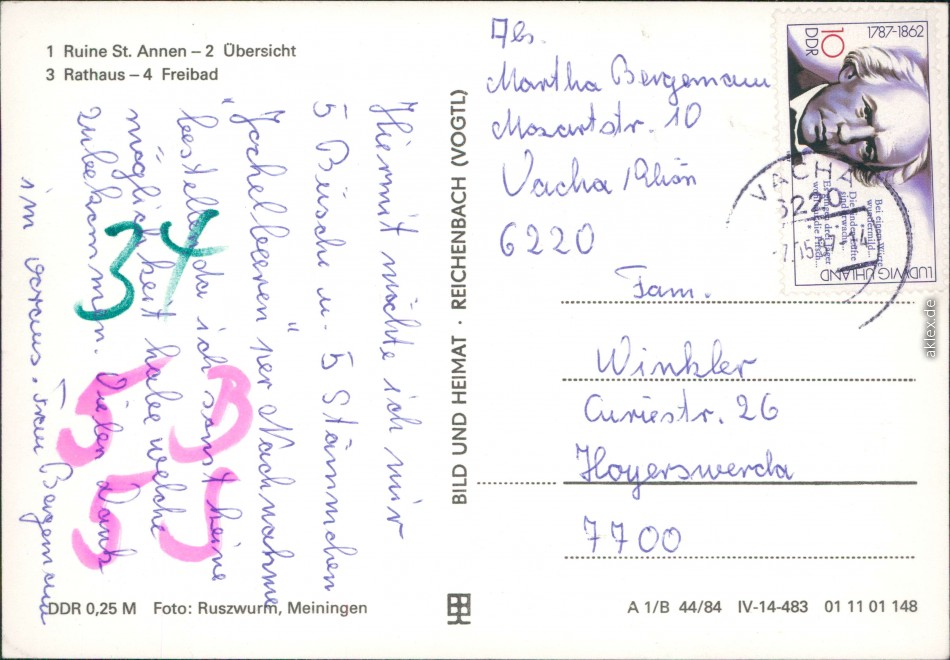 1 Ruine St. Annen – 2 Übersicht
3 Rathaus – 4 Freibad
Hiermit möchte ich mir
5 Büsche u. 5 Stämmchen
"Jochelbeeren" per Nachnahme
bestellen, da ich sonst keine
möglichkeit habe welche
zu bekommen. Vielen Dank
im voraus. Frau Bergemann
34
5 B
5 J
DDR 0,25 M Foto: Ruszwurm, Meiningen
BILD UND HEIMAT · REICHENBACH (VOGTL)
Abs.
Martha Bergemann
Mozartstr. 10
Vacha/Rhön
6220
Fam.
Winkler
Curiestr. 26
Hoyerswerda
7700
A 1/B 44/84 IV-14-483 01 11 01 148
1787-1862
10
DDR
LUDWIG UHLAND
Bei einem Wirte
wundermild...
Die linden Lüfte
sind erwacht...
VACHA
6220
aklex.de